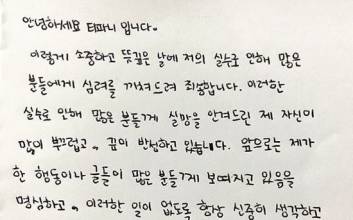 안녕하세요 티파니 입니다.
이렇게 소중하고 뜻깊은 날에 저의 실수로 인해 많은
분들에게 심려를 끼쳐드려 죄송합니다. 이러한
실수로 인해 많은 분들께 실망을 안겨드린 제 자신이
많이 부끄럽고. 깊이 반성하고 있습니다. 앞으로는 제가
한 행동이나 글들이 많은 분들께 보여지고 있음을
명심하고. 이러한 일이 없도록 항상 신중히 생각하고